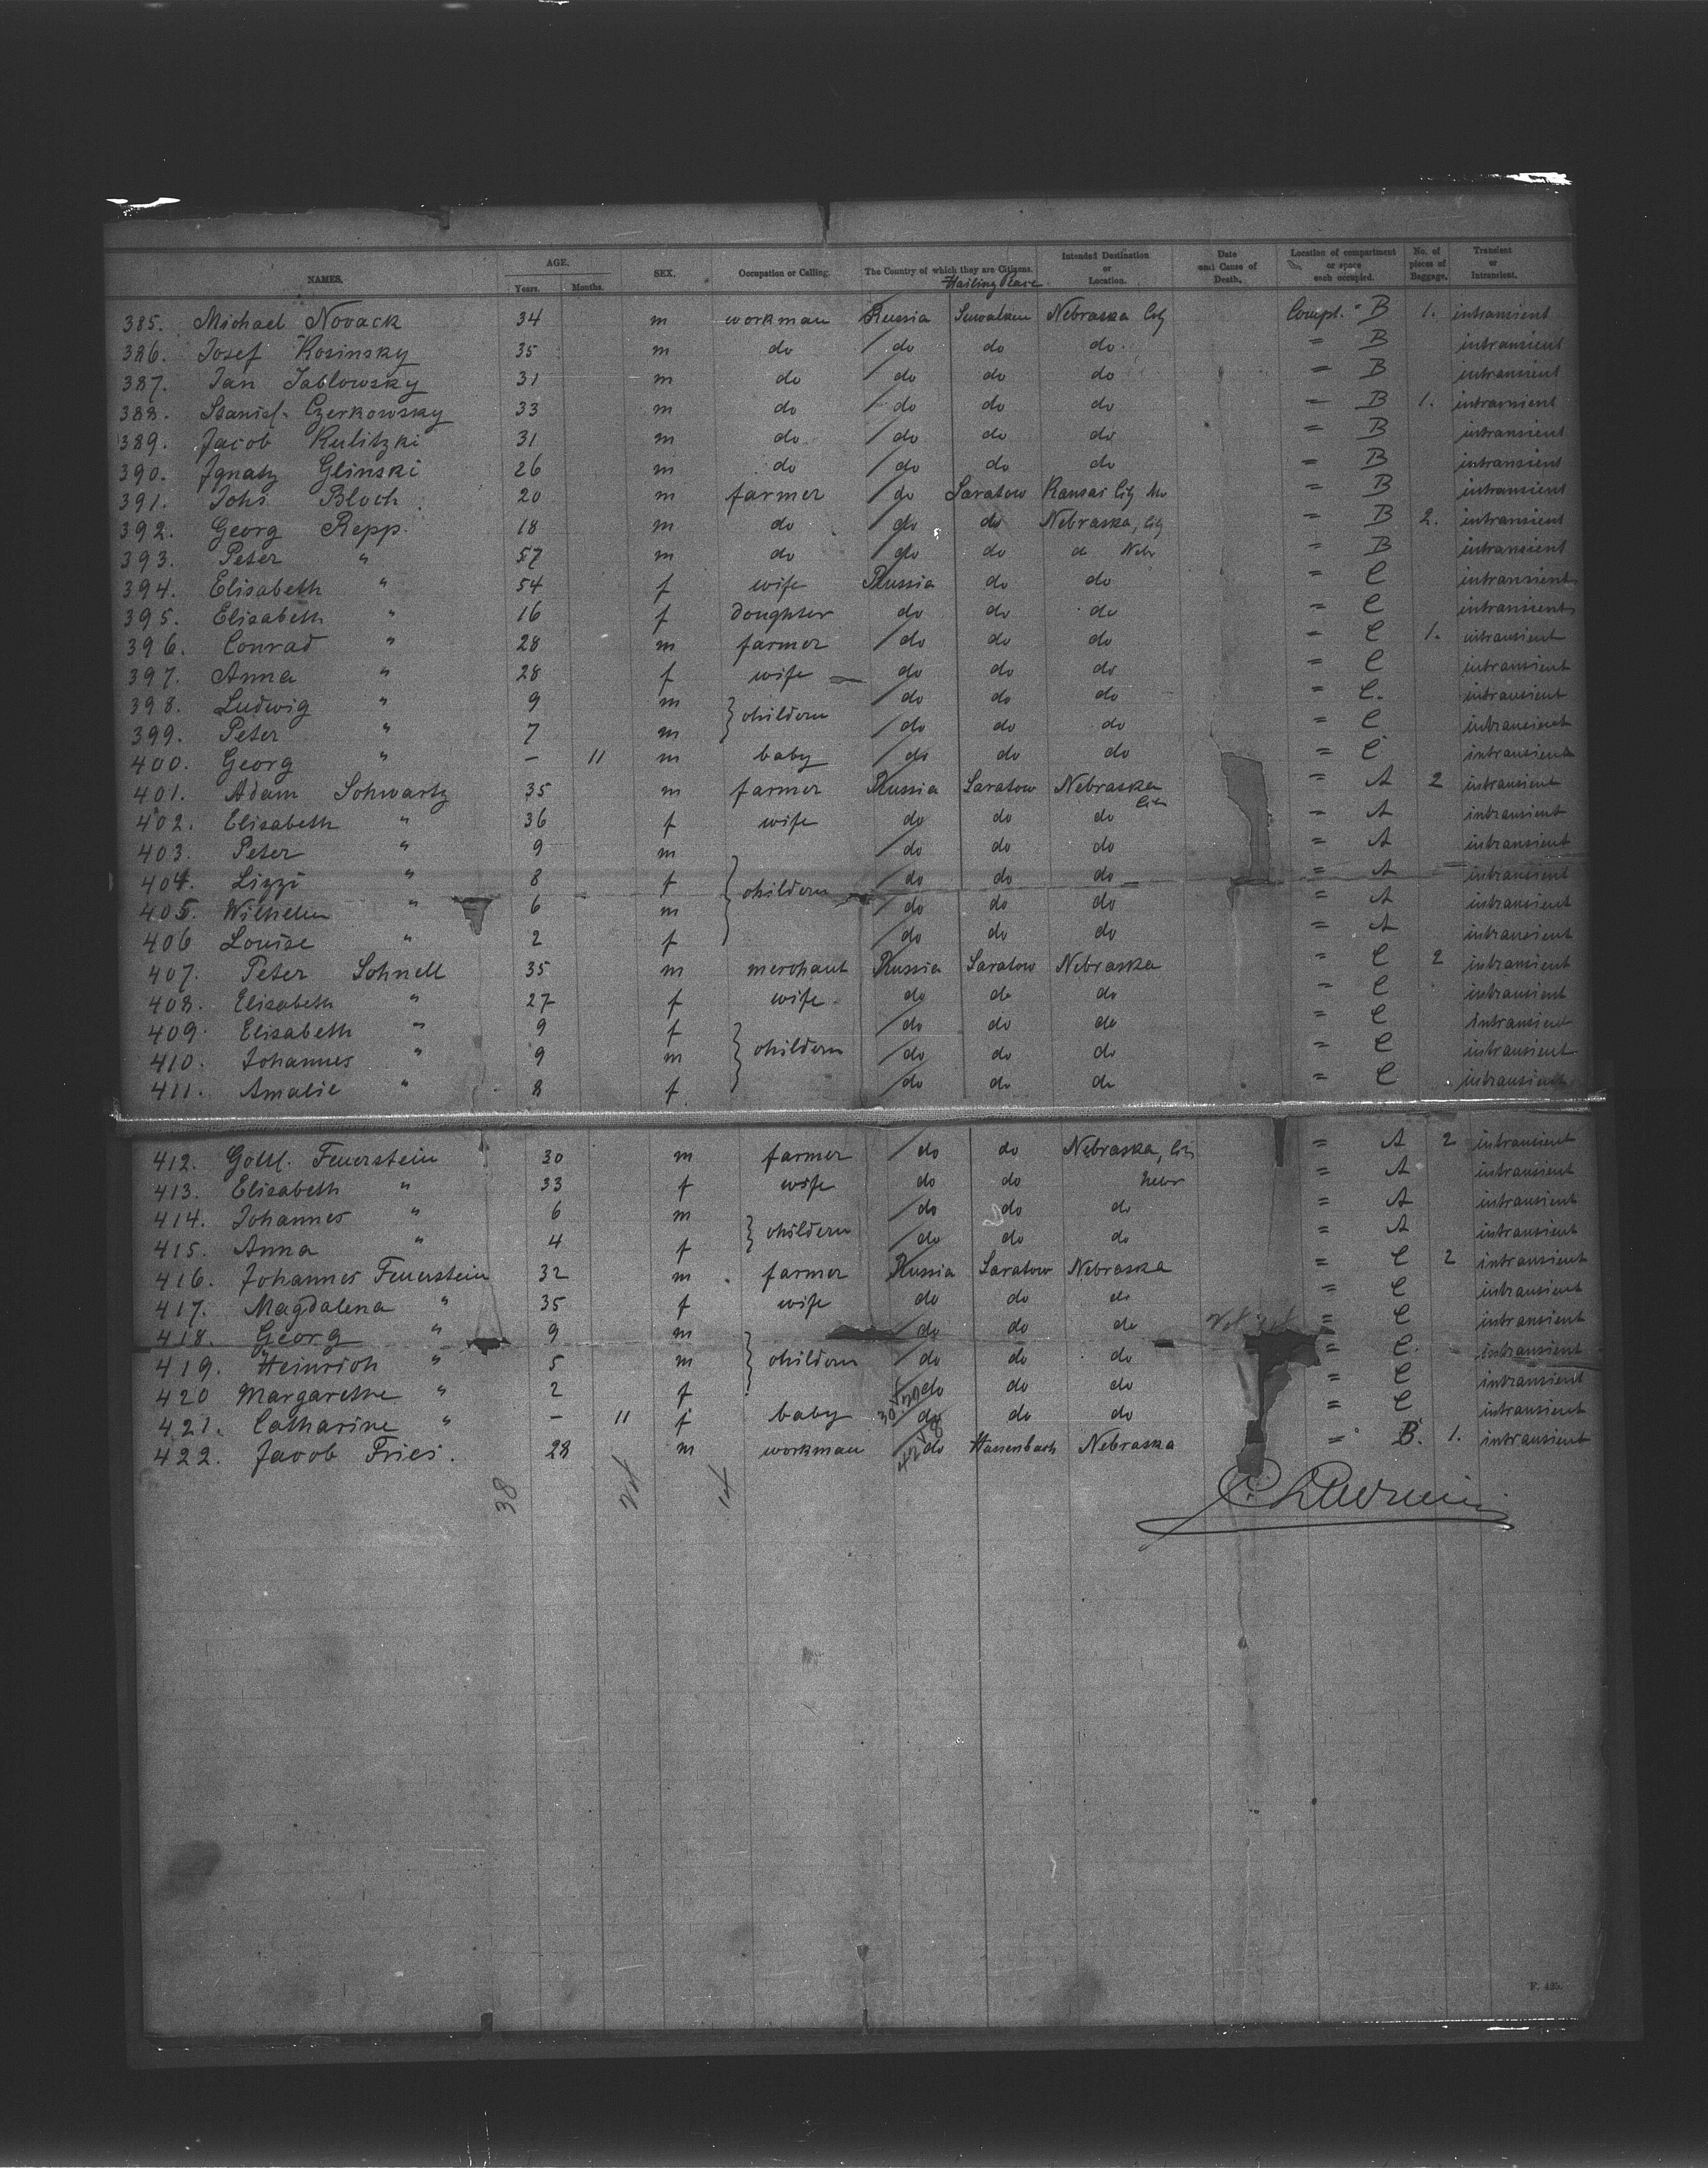 NAMES. AGE. Years. Months. SEX. Occupation or Calling. The Country of which they are Citizens. Hailing Place Intended Destination or Location. Date and Cause of Death. Location of compartment or space each occupied. No. of pieces of Baggage. Transient or Intransient.
385. Michael Novack 34 m workman Russia Suwalken Nebraska City Compt. B 1. intransient
386. Josef Rosinsky 35 m do do do do = B intransient
387. Jan Jablowsky 31 m do do do do = B intransient
388. Stanisl. Czerkowsky 33 m do do do do = B 1. intransient
389. Jacob Kulitzki 31 m do do do do = B intransient
390. Ignatz Glinski 26 m do do do do = B intransient
391. Johs Bloch 20 m farmer do Saratow Kansas City Mo = B intransient
392. Georg Repp. 18 m do do do Nebraska, City = B 2. intransient
393. Peter " 57 m do do do do Nebr = B intransient
394. Elisabeth " 54 f wife Russia do do = C intransient
395. Elisabeth " 16 f doughter do do do = C intransient
396. Conrad " 28 m farmer do do do = C 1. intransient
397. Anna " 28 f wife do do do = C intransient
398. Ludwig " 9 m childern do do do = C. intransient
399. Peter " 7 m do do do = C intransient
400. Georg " – 11 m baby do do do = C intransient
401. Adam Schwartz 35 m farmer Russia Saratow Nebraska City = A 2 intransient
402. Elisabeth " 36 f wife do do do = A intransient
403. Peter " 9 m do do do = A intransient
404. Lizzi " 8 f childern do do do = A intransient
405. Wilhelm " 6 m do do do = A intransient
406 Louise " 2 f do do do = A intransient
407. Peter Schnell 35 m merchant Russia Saratow Nebraska = C 2 intransient
408. Elisabeth " 27 f wife do do do = C intransient
409. Elisabeth " 9 f do do do = C intransient
410. Johannes " 9 m childern do do do = C intransient
411. Amalie " 8 f do do do = C intransient
412. Gottl. Feuerstein 30 m farmer do do Nebraska, City = A 2 intransient
413. Elisabeth " 33 f wife do do Nebr = A intransient
414. Johannes " 6 m childern do do do = A intransient
415. Anna " 4 f do do do = A intransient
416. Johannes Feuerstein 32 m farmer Russia Saratow Nebraska = C 2 intransient
417. Magdalena " 35 f wife do do do = C intransient
418. Georg " 9 m do do do = C intransient
419. Heinrich " 5 m childern do do do = C. intransient
420 Margarethe " 2 f do do do = C intransient
421. Catharine " – 11 f baby do do do = C intransient
422. Jacob Fries. 28 m workman do Hassenbach Nebraska = B. 1. intransient
38 24 14
F. 435.